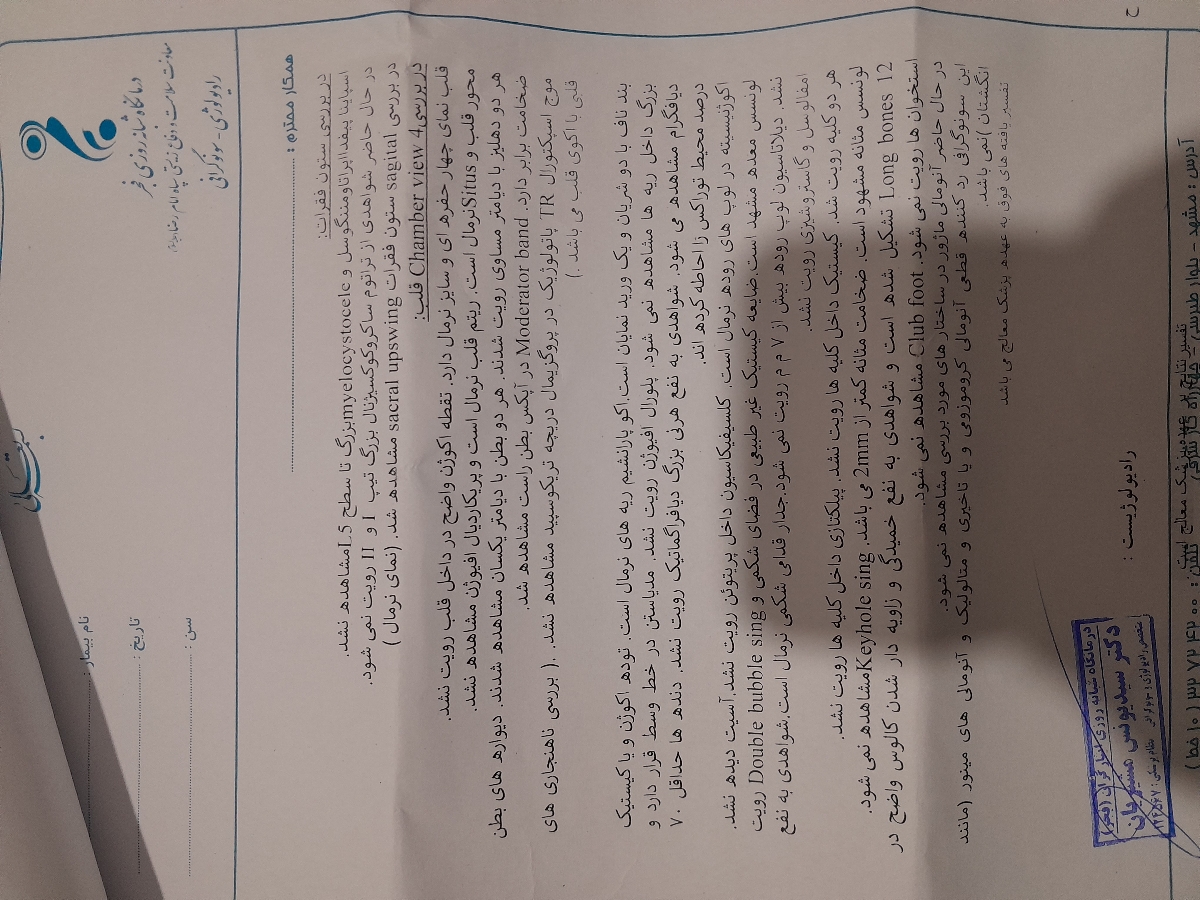 رادیولوژی - سونوگرافی
درمانگاه شبانه روزی فجر
نام بیمار :
تاریخ :
سن :
همکار محترم :
در بررسی ستون فقرات:
اسپاینا بیفیدا ایراتا و مننگوسل و myelocystocele بزرگ تا سطح L5 مشاهده نشد.
در حال حاضر شواهدی از تراتوم ساکروکوکسیژنال بزرگ تیپ I و II رویت نمی شود.
در بررسی sagital ستون فقرات sacral upswing مشاهده شد. (نمای نرمال )
در بررسی 4 Chamber view قلب:
قلب نمای چهار حفره ای و سایز نرمال دارد. نقطه اکوژن واضح در داخل قلب رویت نشد.
محور قلب و Situs نرمال است. ریتم قلب نرمال است و پریکاردیال افیوژن مشاهده نشد.
هر دو دهلیز با دیامتر مساوی رویت شدند. هر دو بطن با دیامتر یکسان مشاهده شدند. دیواره های بطن
ضخامت برابر دارد. Moderator band در آپکس بطن راست مشاهده شد.
موج اسپکتورال TR پاتولوژیک در پروگزیمال دریچه تریکوسپید مشاهده نشد. .( بررسی ناهنجاری های
قلبی با اکوی قلب می باشد .)
بند ناف با دو شریان و یک ورید نمایان است.اکو پارانشیم ریه های نرمال است. توده اکوژن و یا کیستیک
بزرگ داخل ریه ها مشاهده نمی شود. پلورال افیوژن رویت نشد. مدیاستن در خط وسط قرار دارد و
دیافگرام مشاهده می شود. شواهدی به نفع هرنی بزرگ دیافراگماتیک رویت نشد. دنده ها حداقل ۷۰
درصد محیط توراکس را احاطه کرده اند.
اکوژنیسیته در لوپ های روده نرمال است. کلسیفیکاسیون داخل پریتوئن رویت نشد.آسیت دیده نشد.
لونسس معده مشهد است.ضایعه کیستیک غیر طبیعی در فضای شکمی و Double bubble sing رویت
نشد. دیلاتاسیون لوپ روده بیش از ۷ م م رویت نمی شود.جدار قدامی شکم نرمال است.شواهدی به نفع
امفالوسل و گاستروشیزی رویت نشد.
هر دو کلیه رویت شد. کیستیک داخل کلیه ها رویت نشد. پیلکتازی داخل کلیه ها رویت نشد.
لونسس مثانه مشهود است. ضخامت مثانه کمتر از 2mm می باشد. Keyhole sing مشاهده نمی شود.
12 Long bones تشکیل شده است و شواهدی به نفع خمیدگی و زاویه دار شدن کالوس واضح در
استخوان ها رویت نمی شود. Club foot مشاهده نمی شود.
در حال حاضر آنومالی ماژور در ساختار های مورد بررسی مشاهده نمی شود.
این سونوگرافی رد کننده قطعی آنومالی کروموزومی و یا تاخیری و متابولیک و آنومالی های مینور (مانند
انگشتان )نمی باشد.
تفسیر یافته های فوق به عهده پزشک معالج می باشد
رادیولوژیست :
دکتر سید یونس